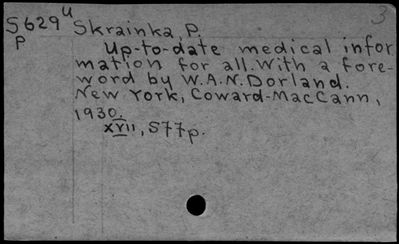 S629u Skrainka, P. 3
P Up-to-date medical infor
mation for all. With a fore-
word by W.A.N. Dorland.
New York, Coward-MacCann,
1930.
xvii, 577p.